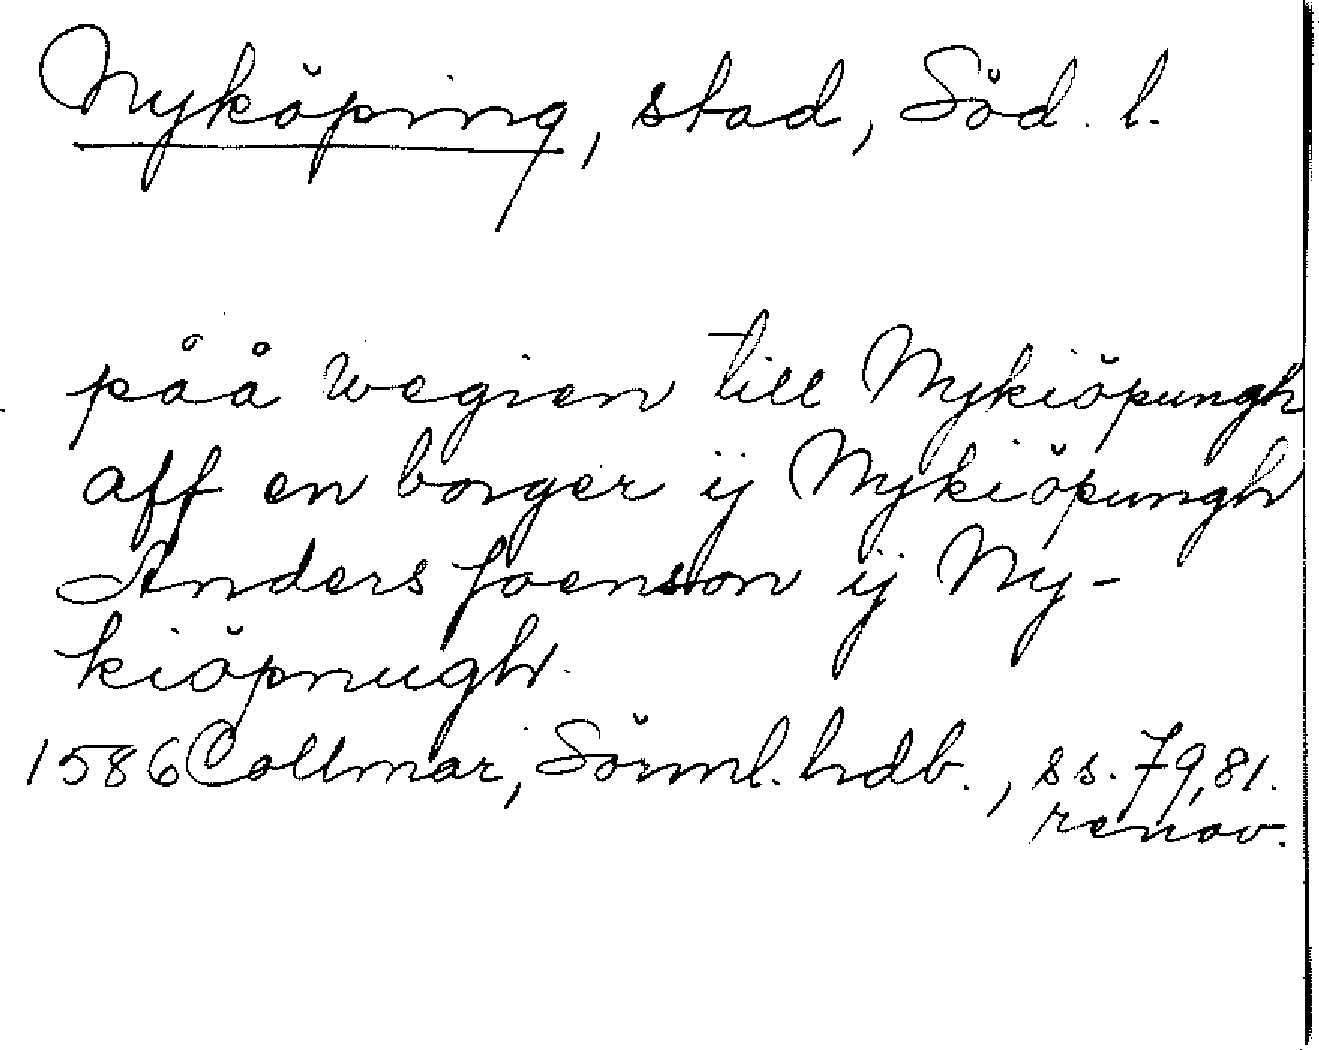 Nyköping, stad, Söd. l.
påå wegien till Nykiöpungh
aff en borger ij Nykiöpungh
Anders Joenson ij Ny-
kiöpnugh.
1586 Collmar, Sörml. hdb., ss. 79, 81.
renov.